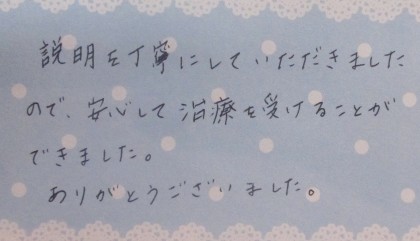 説明を丁寧にしていただきました
ので、安心して治療を受けることが
できました。
ありがとうございました。